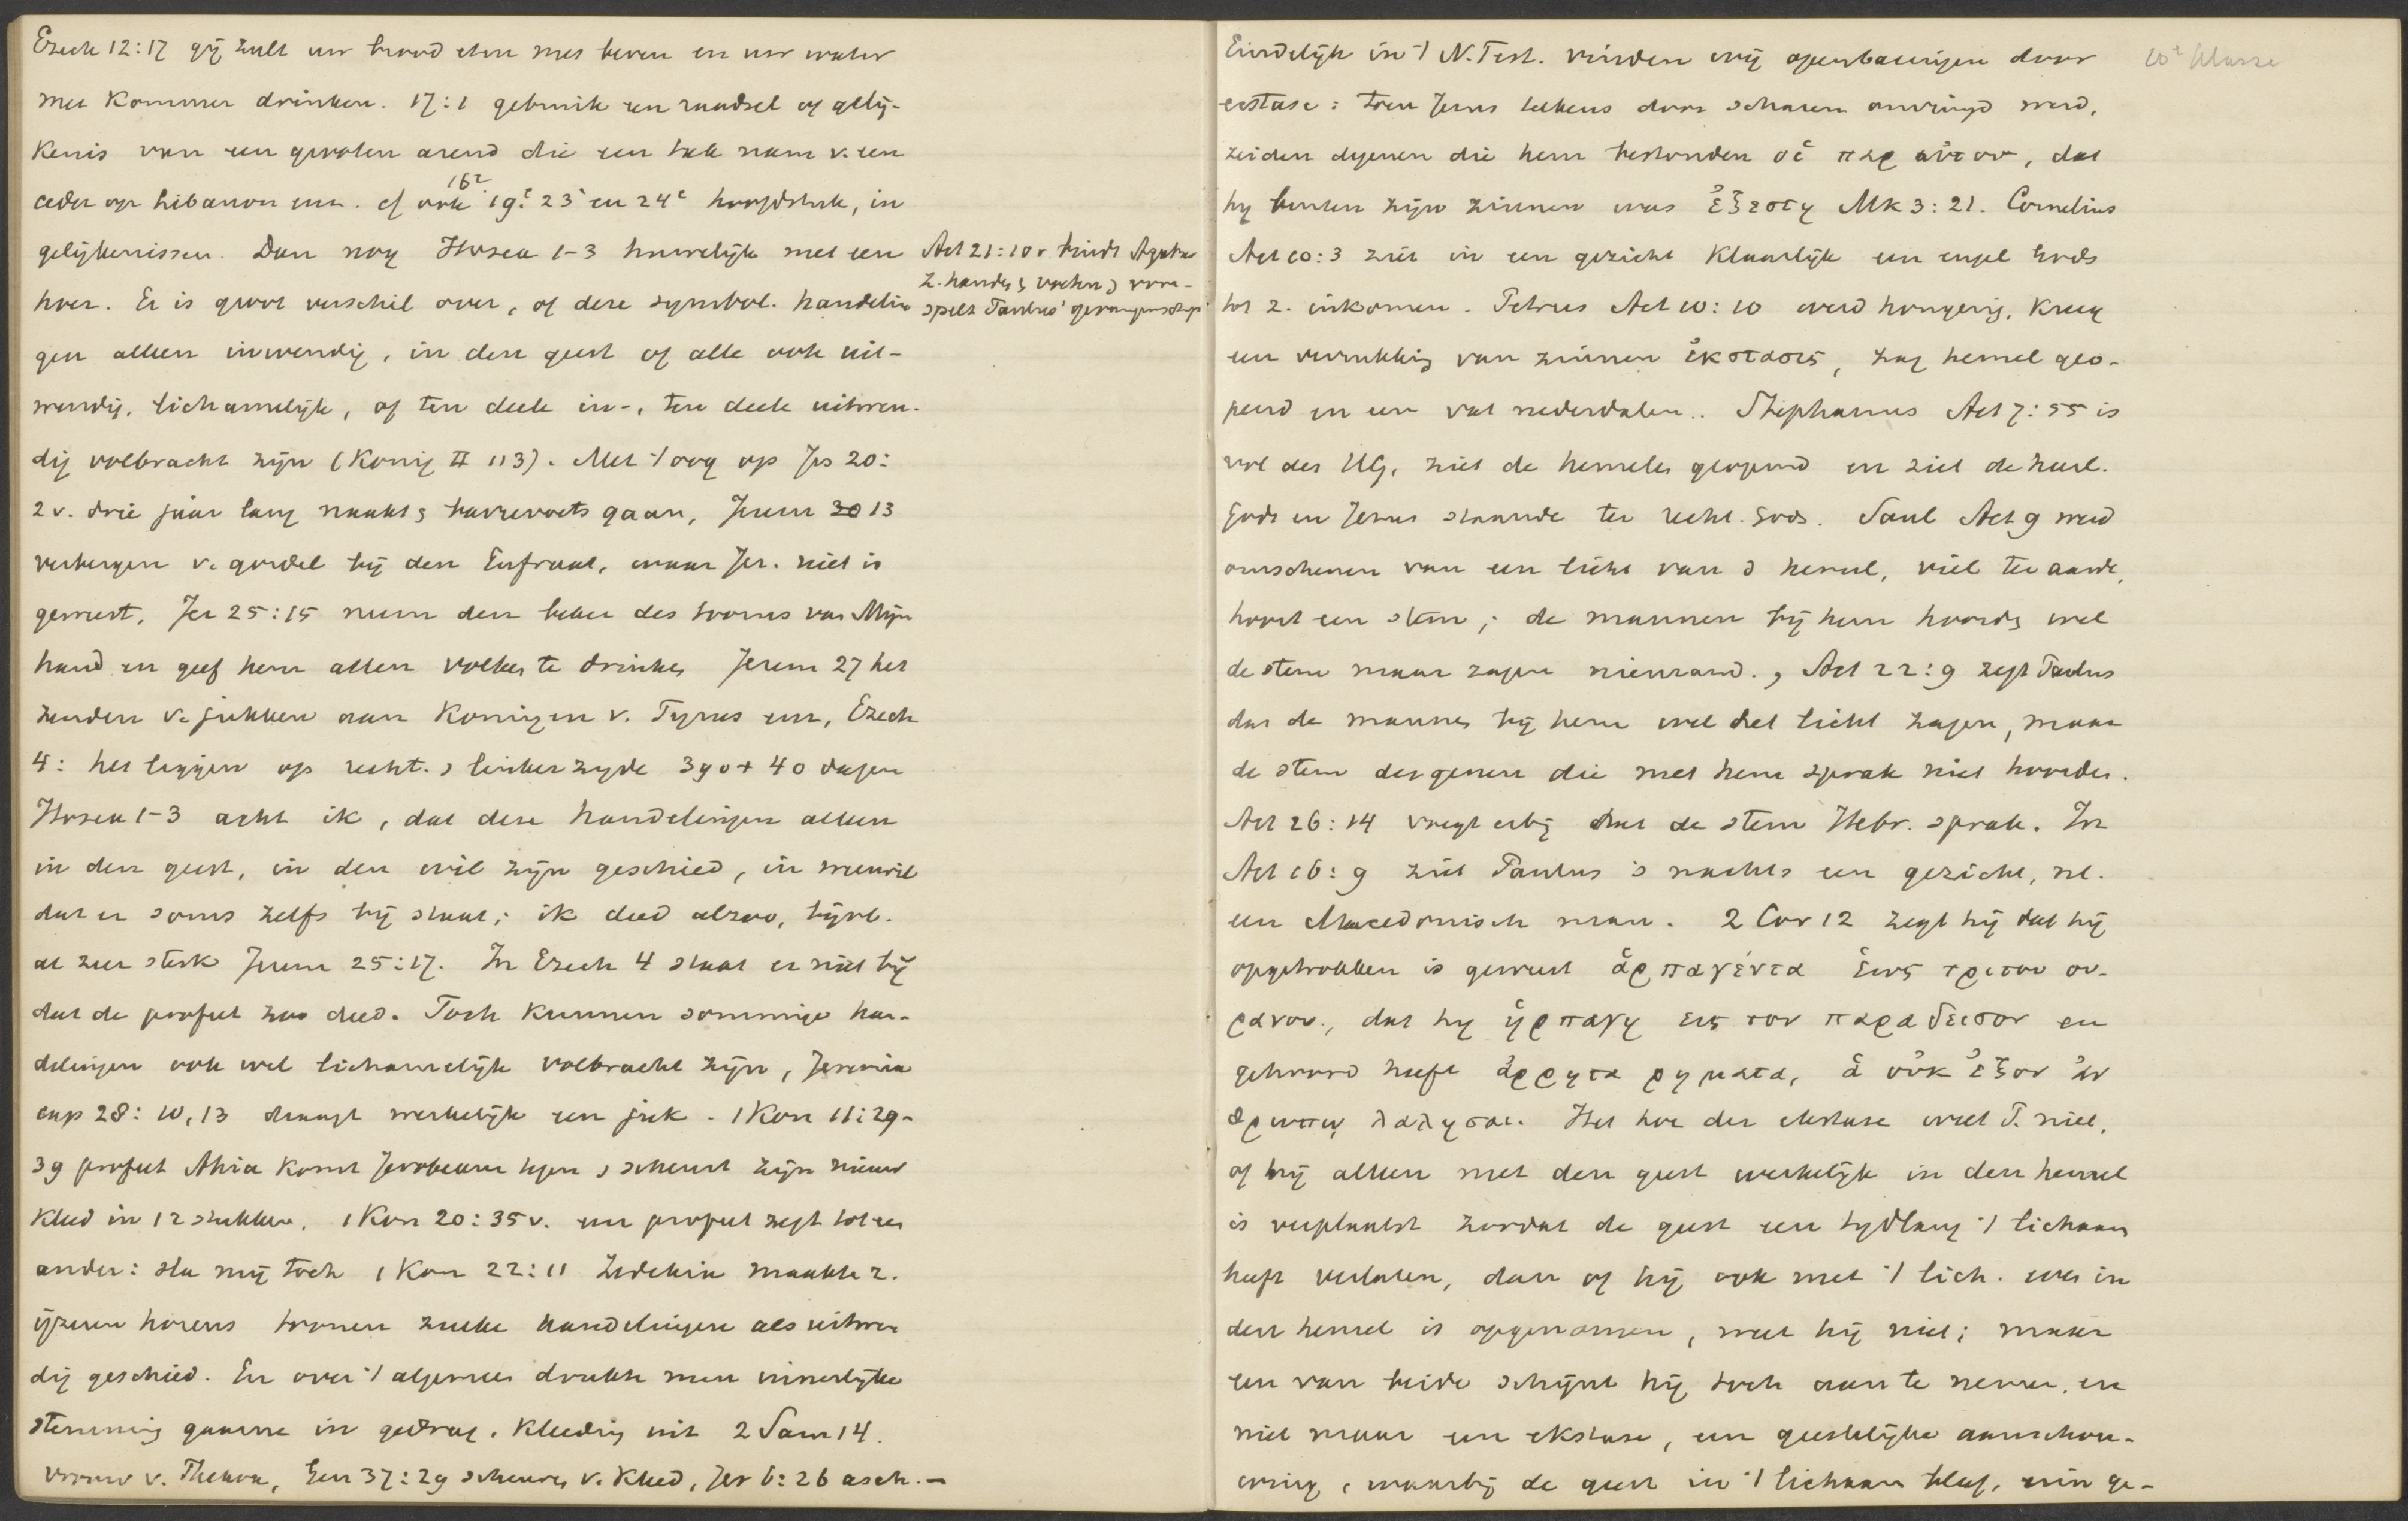 Ezech 12:17 gij zult uw brood eten met beven en uw water
met kommer drinken. 17:1 gebruik een raadsel of gelij-
kenis van een grooten arend die een tak nam v. een
ceder op Libanon enz. cf ook 16e 19e 23e en 24e hoofdstuk, in
gelijkenissen. Dan nog Hosea 1-3 huwelijk met een
hoer. Er is groot verschil over, of deze symbol. handelin
gen alleen inwendig, in den geest of alle ook uit-
wendig, lichamelijk, of ten deele in-, ten deele uitwen-
dig volbracht zijn (König II 113). Met 't oog op Jes 20:
2 v. drie jaar lang naakt & barrevoets gaan, Jerem 13
verbergen v. gordel bij den Eufraat, waar Jer. niet is
geweest, Jer 25:15 neem den beker des toorns van Mijn
hand en geef hem allen volken te drinken Jerem 27 het
zenden v. jukken aan koningen v. Tyrus enz, Ezech
4: het liggen op recht. & linkerzyde 390 + 40 dagen
Hosea 1-3 acht ik, dat deze handelingen alleen
in den geest, in den wil zijn geschied, in weerwil
dat er soms zelfs bij staat; ik deed alzoo, bijvb.
al zeer sterk Jerem 25:17. In Ezech 4 staat er niet bij
dat de profeet zoo deed. Toch kunnen sommige han-
delingen ook wel lichamelijk volbracht zijn, Jeremia
cap 28: 10, 13 draagt werkelijk een juk. 1 Kon 11:29-
39 profeet Ahia komt Jerobeam tegen & scheurt zijn nieuw
kleed in 12 stukken. 1 Kon 20:35 v. een profeet zegt tot een
ander: sla mij toch 1 Kon 22:11 Zedekia maakte z.
ijzeren horens toonen zulke handelingen als uitwen
dig geschied. En over 't algemeen drukte men innerlijke
stemming gaarne in gedrag, kleeding uit 2 Sam 14.
vrouw v. Thekoa, Gen 37:29 scheuren v. kleed, Jer 6:26 asch. —
Act 21:10 v bindt Agabus
z. handen & voeten & voor-
spelt Paulus' gevangenschap
Eindelijk in 't N. Test. vinden wij openbaringen door
extase: toen Jezus telkens door scharen omringd werd,
zeiden degenen die hem bestonden οἱ παρ αὐτου, dat
hy buiten zijn zinnen was ἐξεστη Mk 3:21. Cornelius
Act 10:3 ziet in een gezicht klaarlijk een engel Gods
tot z. inkomen. Petrus Act 10:10 werd hongerig, kreeg
een verrukking van zinnen ἐκστασις, zag hemel geo-
pend en een vat nederdalen.. Stephanus Act 7:55 is
vol des HG, ziet de hemelen geopend en ziet de heerl.
Gods en Jezus staande ter recht. Gods. Saul Act 9 werd
omschenen van een licht van d hemel, viel ter aarde,
hoort een stem; de mannen bij hem hoorden wel
de stem maar zagen niemand., Act 22:9 zegt Paulus
dat de mannen bij hem wel het licht zagen, maar
de stem desgenen die met hem sprak niet hoorden.
Act 26:14 voegt erbij dat de stem Hebr. sprak. In
Act 16:9 ziet Paulus 's nachts een gezicht, nl.
een Macedonisch man. 2 Cor 12 zegt hij dat hij
opgetrokken is geweest ἁρπαγέντα ἑως τριτου ου-
ρανου., dat hy ἡρπαγη εις τον παραδεισον en
gehoord heeft ἀρρητα ρηματα, ἁ οὐκ ἐξον ἀν
θρωπῳ λαλησαι. Het hoe der ekstase weet P. niet,
of hij alleen met den geest werkelijk in den hemel
is verplaatst zoodat de geest een tydlang 't lichaam
heeft verlaten, dan of hij ook met 't lich. was in
den hemel is opgenomen, weet hij niet; maar
een van beide schijnt hij toch aan te nemen, en
niet maar een ekstase, een geestelijke aanschou-
wing, waarbij de geest in 't lichaam bleef, een ge-
10e klasse